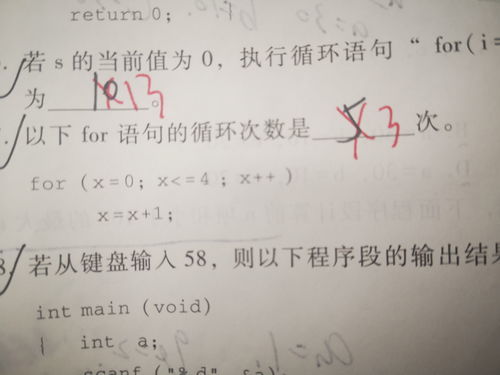 return 0;
若 s 的当前值为 0，执行循环语句 “ for(i=
为 10 13 。
以下 for 语句的循环次数是 5 3 次。
for (x=0; x<=4 ; x++ )
x=x+1;
8. 若从键盘输入 58，则以下程序段的输出结果
int main (void)
{ int a;
scanf ("%d", &a)